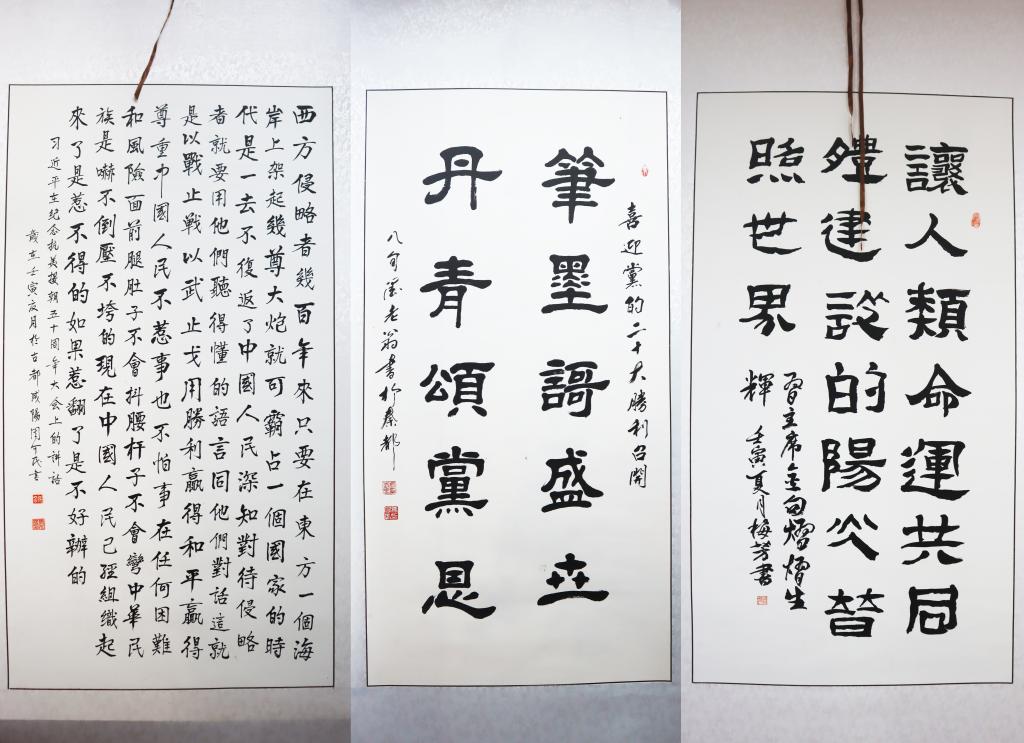 西方侵略者幾百年來只要在東方一個海
岸上架起幾尊大炮就可霸占一個國家的時
代是一去不復返了中國人民深知對待侵略
者就要用他們聽得懂的語言同他們對話這就
是以戰止戰以武止戈用勝利贏得和平贏得
尊重中國人民不惹事也不怕事在任何困難
和風險面前腿肚子不會抖腰杆子不會彎中華民
族是嚇不倒壓不垮的現在中國人民已經組織起
來了是惹不得的如果惹翻了是不好辦的
习近平在纪念抗美援朝五十周年大会上的讲话
歲在壬寅夏月於古都咸陽周民書
喜迎黨的二十大勝利召開
筆墨謌盛世
丹青頌黨恩
八旬老翁書於秦都
讓人類命運共同
體建設的陽光普
照世界
習主席金句熠熠生
輝
壬寅夏月梅芳書